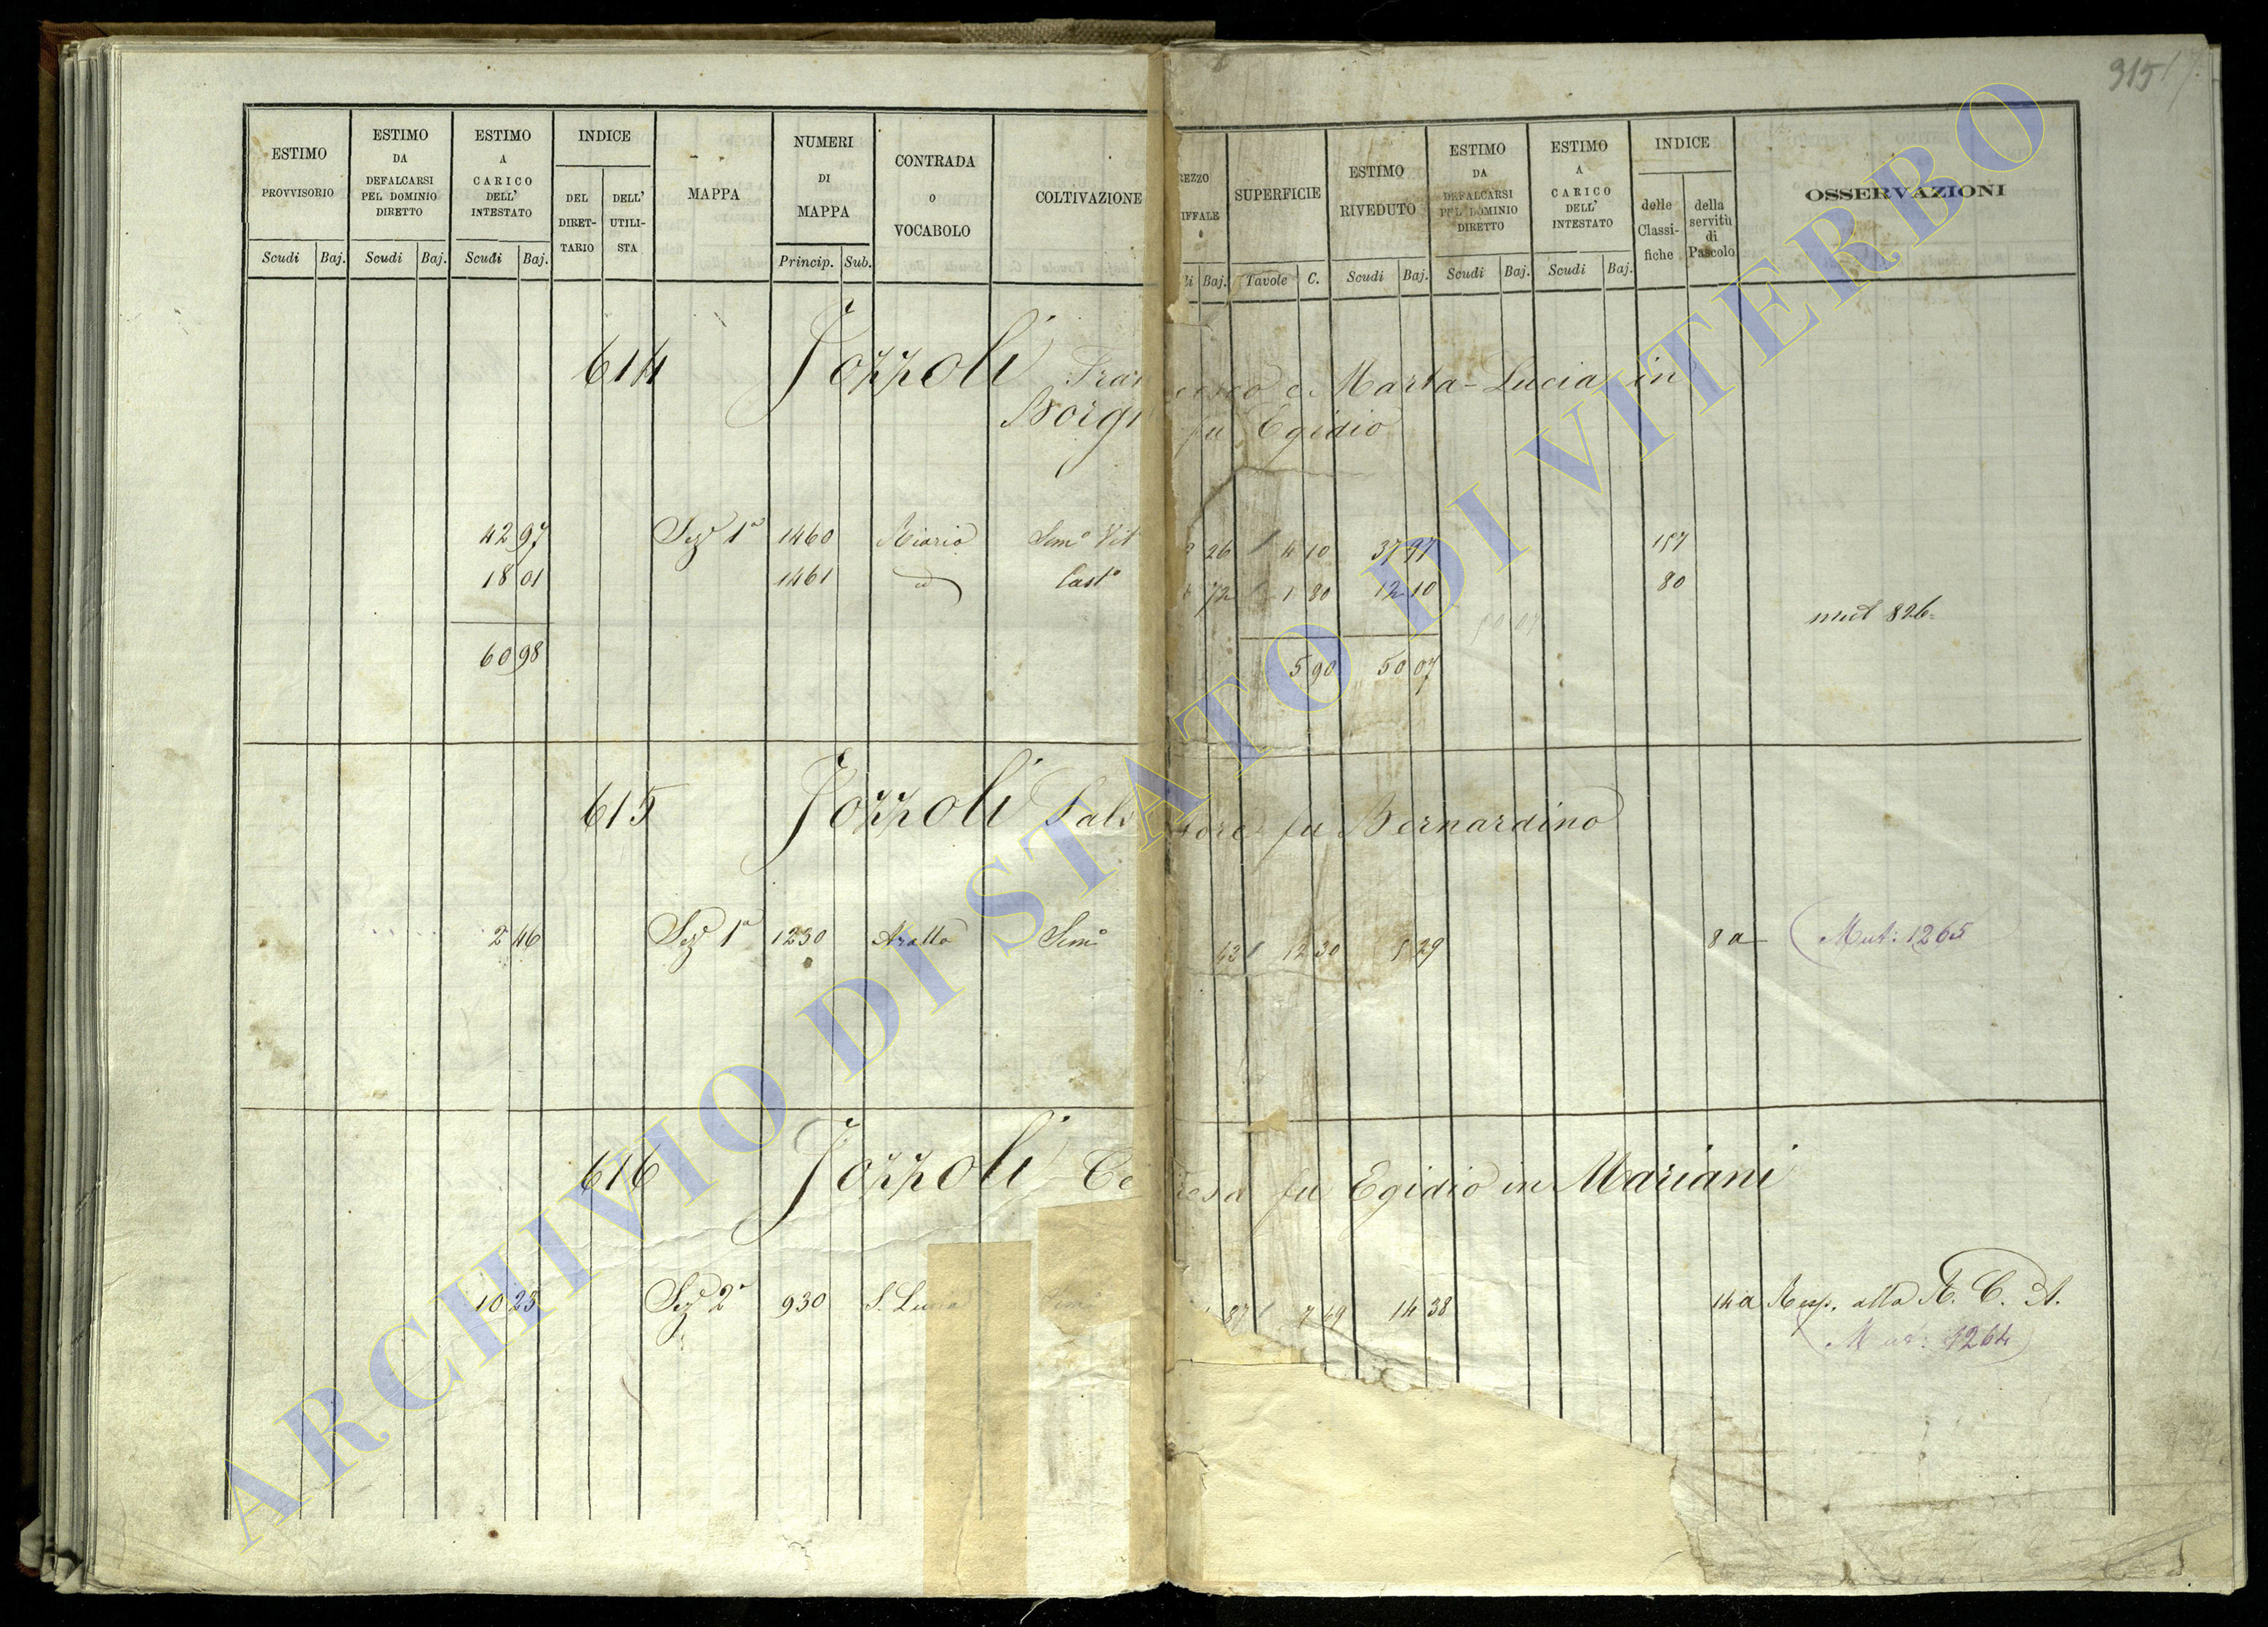 315 17.
ESTIMO PROVVISORIO Scudi Baj.
ESTIMO DA DEFALCARSI PEL DOMINIO DIRETTO Scudi Baj.
ESTIMO A CARICO DELL' INTESTATO Scudi Baj.
INDICE DEL DIRET- TARIO DELL' UTILI- STA
MAPPA
NUMERI DI MAPPA Princip. Sub.
CONTRADA O VOCABOLO
COLTIVAZIONE
REZZO IFFALE li Baj.
SUPERFICIE Tavole C.
ESTIMO RIVEDUTO Scudi Baj.
ESTIMO DA DEFALCARSI PEL DOMINIO DIRETTO Scudi Baj.
ESTIMO A CARICO DELL' INTESTATO Scudi Baj.
INDICE delle Classi- fiche della servitù di Pascolo
OSSERVAZIONI
614 Jozzoli Francesco e Marta-Lucia in
Borgi fu Egidio
42 97 Sez 1a 1460 Riario Semo Vit 26 4 10 37 97 157
18 01 1461 id Casto 72 1 80 12 10 80
mut 826
60 98 5 90 50 07
50 07
615 Jozzoli Salvatore fu Bernardino
2 46 Sez 1a 1230 Aratta Semo 43 12 30 5 29 8 a Mut: 1265
616 Jozzoli Teresa fu Egidio in Mariani
10 23 Sez 2a 930 S. Lucia Semo 87 7 69 14 38 14 a Resp. alla R. C. A.
Mut: 1264
ARCHIVIO DI STATO DI VITERBO